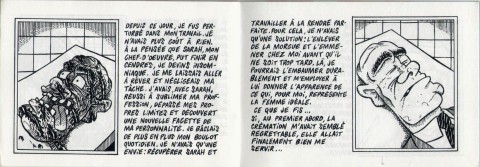 DEPUIS CE JOUR, JE FUS PER-
TURBÉ DANS MON TRAVAIL. JE
N'AVAIS PLUS GOÛT À RIEN.
À LA PENSÉE QUE SARAH, MON
CHEF-D'OEUVRE, PUT FINIR EN
CENDRES, JE DEVINS INSOM-
NIAQUE. JE ME LAISSAIS ALLER
À RÊVER ET NÉGLIGEAIS MA
TÂCHE. J'AVAIS, AVEC SARAH,
RÉUSSI À SUBLIMER MA PROF-
FESSION, DÉPASSÉ MES PRO-
PRES LIMITES ET DÉCOUVERT
UNE NOUVELLE FACETTE DE
MA PERSONNALITÉ. JE BÂCLAIS
DE PLUS EN PLUS MON BOULOT
QUOTIDIEN. JE N'AVAIS QU'UNE
ENVIE: RÉCUPÉRER SARAH ET
TRAVAILLER À LA RENDRE PAR-
FAITE. POUR CELA, JE N'AVAIS
QU'UNE SOLUTION: L'ENLEVER
DE LA MORGUE ET L'EMME-
NER CHEZ MOI AVANT QU'IL
NE SOIT TROP TARD. LÀ, JE
POURRAIS L'EMBAUMER DURA-
BLEMENT ET M'EMPLOYER À
LUI DONNER L'APPARENCE DE
CE QUI, POUR MOI, REPRÉSENTE
LA FEMME IDÉALE.
CE QUE JE FIS...
SI, AU PREMIER ABORD, LA
CRÉMATION M'AVAIT SEMBLÉ
REGRETTABLE, ELLE ALLAIT
FINALEMENT BIEN ME
SERVIR...